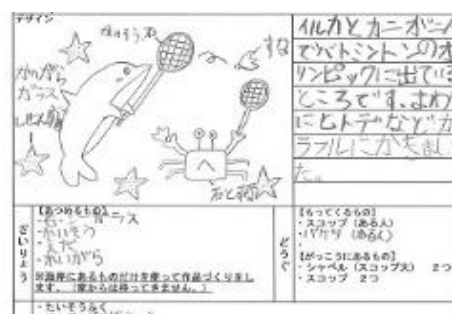 デザイン
かいそう石
すな
かいがら
ガラス
しぜん
石と
イルカとカニがニノ
でバトミントンのオ
リンピックに出ている
ところです。まわり
にヒトデなどカ
ラフルにかざりまし
た。
ざいりょう
【あつめるもの】
・石・シーガラス
・かいそう
・えだ
・かいがら
※海岸にあるものだけを使って作品づくりをし
ます。（家からは持ってきません。）
どうぐ
【もってくるもの】
・スコップ（ある人）
・バケツ（ある人）
【がっこうにあるもの】
・シャベル（スコップ大） 2つ
・スコップ 2つ
・たいそうふく